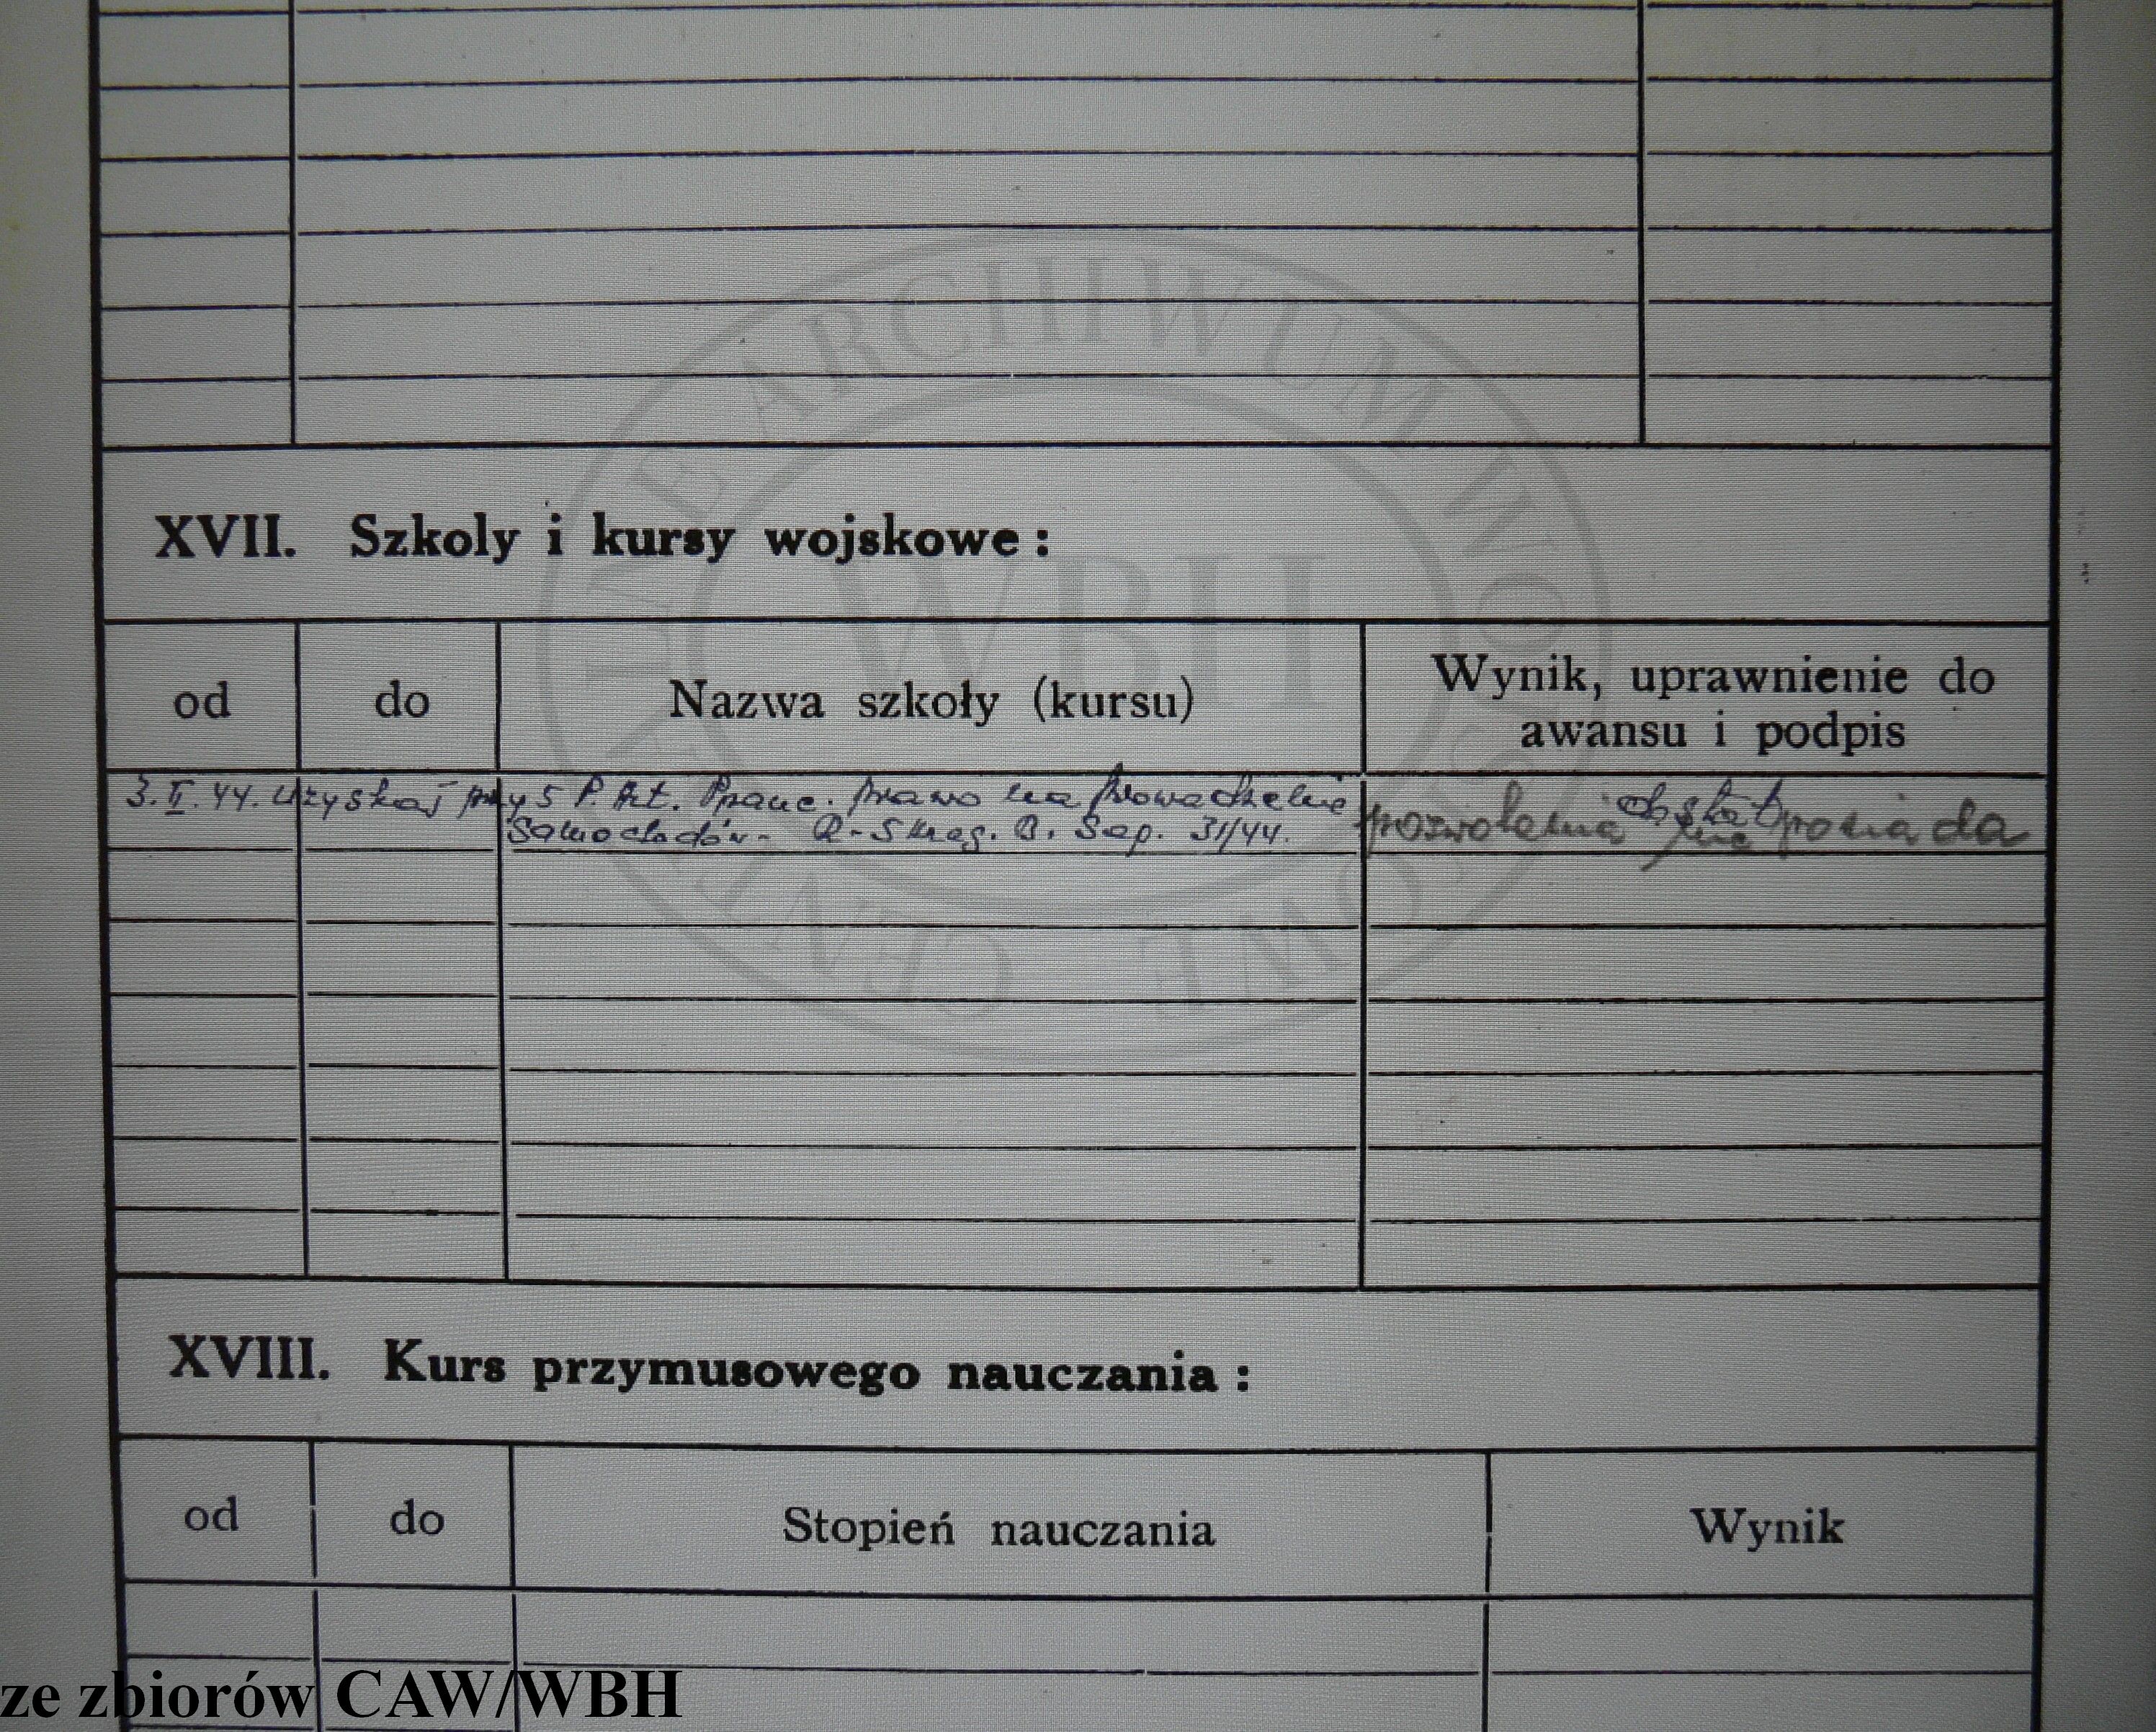 XVII. Szkoly i kursy wojskowe :
od do Nazwa szkoły (kursu) Wynik, uprawnienie do
awansu i podpis
3.II.44. uzyskał przy 5 P. Art. Ppanc. prawo na prowadzenie
samochodów - R-5 31/44.
pozwolenia nie posiada
XVIII. Kurs przymusowego nauczania :
od do Stopień nauczania Wynik
ze zbiorów CAW/WBH
CENTRALNE ARCHIWUM WOJSKOWE
WBH